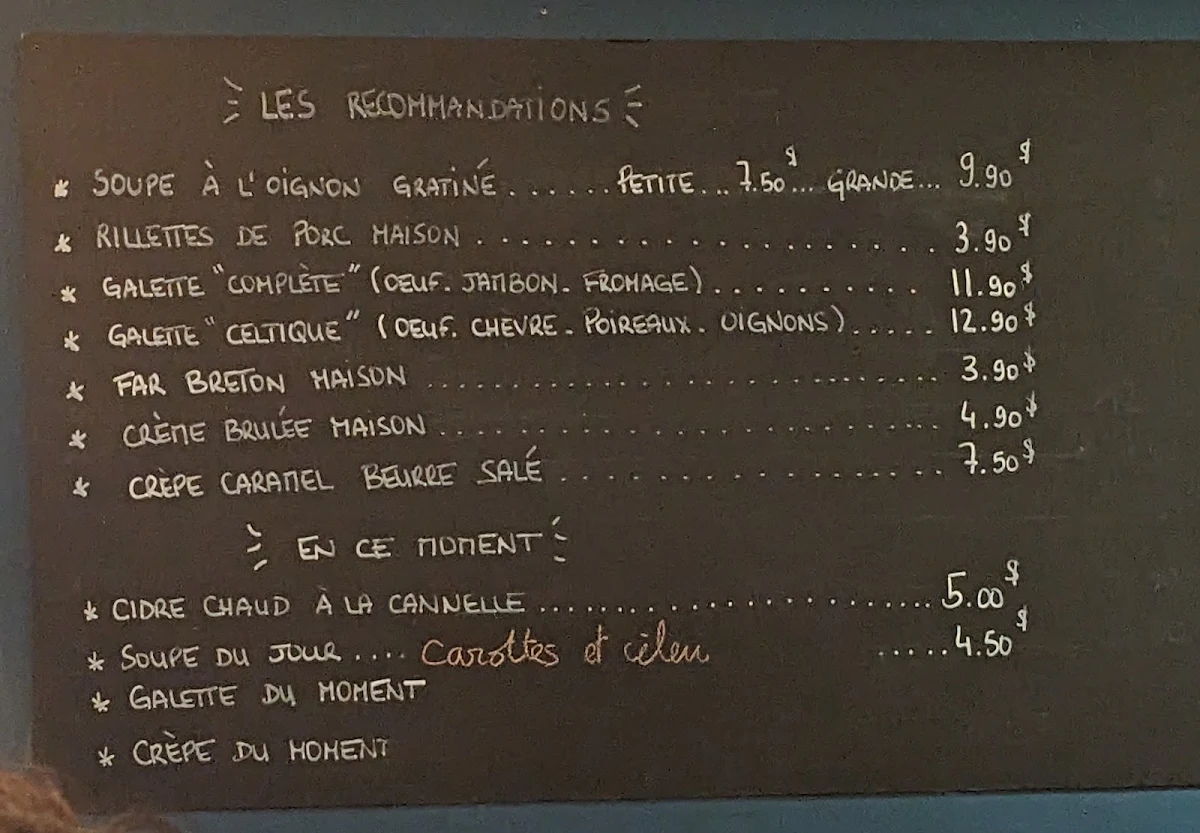 LES RECOMMANDATIONS
* SOUPE À L'OIGNON GRATINÉ...... PETITE... 7.50$... GRANDE... 9.90$
* RILLETTES DE PORC MAISON ........................ 3.90$
* GALETTE "COMPLÈTE" (OEUF. JAMBON. FROMAGE) .......... 11.90$
* GALETTE "CELTIQUE" (OEUF. CHEVRE. POIREAUX. OIGNONS)...... 12.90$
* FAR BRETON MAISON ........................ 3.90$
* CRÈME BRULÉE MAISON ........................ 4.90$
* CRÈPE CARAMEL BEURRE SALÉ .................... 7.50$
EN CE MOMENT
* CIDRE CHAUD À LA CANNELLE ........................ 5.00$
* SOUPE DU JOUR .... Carottes et céleri .....4.50$
* GALETTE DU MOMENT
* CRÈPE DU MOMENT